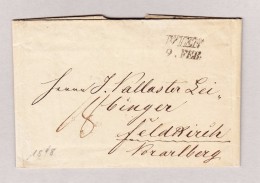 WIEN
9. FEB
Herrn J. Vallaster Lei-
binger
8
Feldkirch
Vorarlberg.